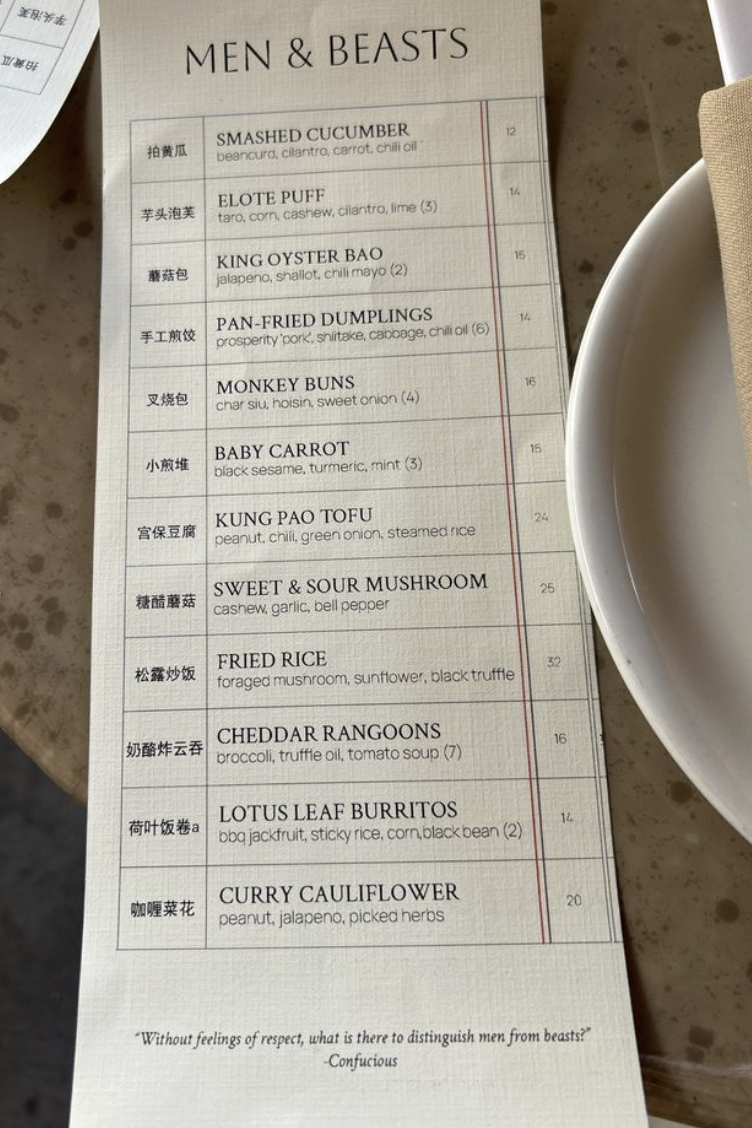 MEN & BEASTS
拍黄瓜
SMASHED CUCUMBER
12
beancurd, cilantro, carrot, chili oil
芋头泡芙
ELOTE PUFF
14
taro, corn, cashew, cilantro, lime (3)
蘑菇包
KING OYSTER BAO
15
jalapeno, shallot, chili mayo (2)
手工煎饺
PAN-FRIED DUMPLINGS
14
prosperity 'pork', shiitake, cabbage, chili oil (6)
叉烧包
MONKEY BUNS
16
char siu, hoisin, sweet onion (4)
小煎堆
BABY CARROT
15
black sesame, turmeric, mint (3)
宫保豆腐
KUNG PAO TOFU
24
peanut, chili, green onion, steamed rice
糖醋蘑菇
SWEET & SOUR MUSHROOM
25
cashew, garlic, bell pepper
松露炒饭
FRIED RICE
32
foraged mushroom, sunflower, black truffle
奶酪炸云吞
CHEDDAR RANGOONS
16
broccoli, truffle oil, tomato soup (7)
荷叶饭卷a
LOTUS LEAF BURRITOS
14
bbq jackfruit, sticky rice, corn,black bean (2)
咖喱菜花
CURRY CAULIFLOWER
20
peanut, jalapeno, picked herbs
"Without feelings of respect, what is there to distinguish men from beasts?"
-Confucious
芋头泡芙
拍黄瓜